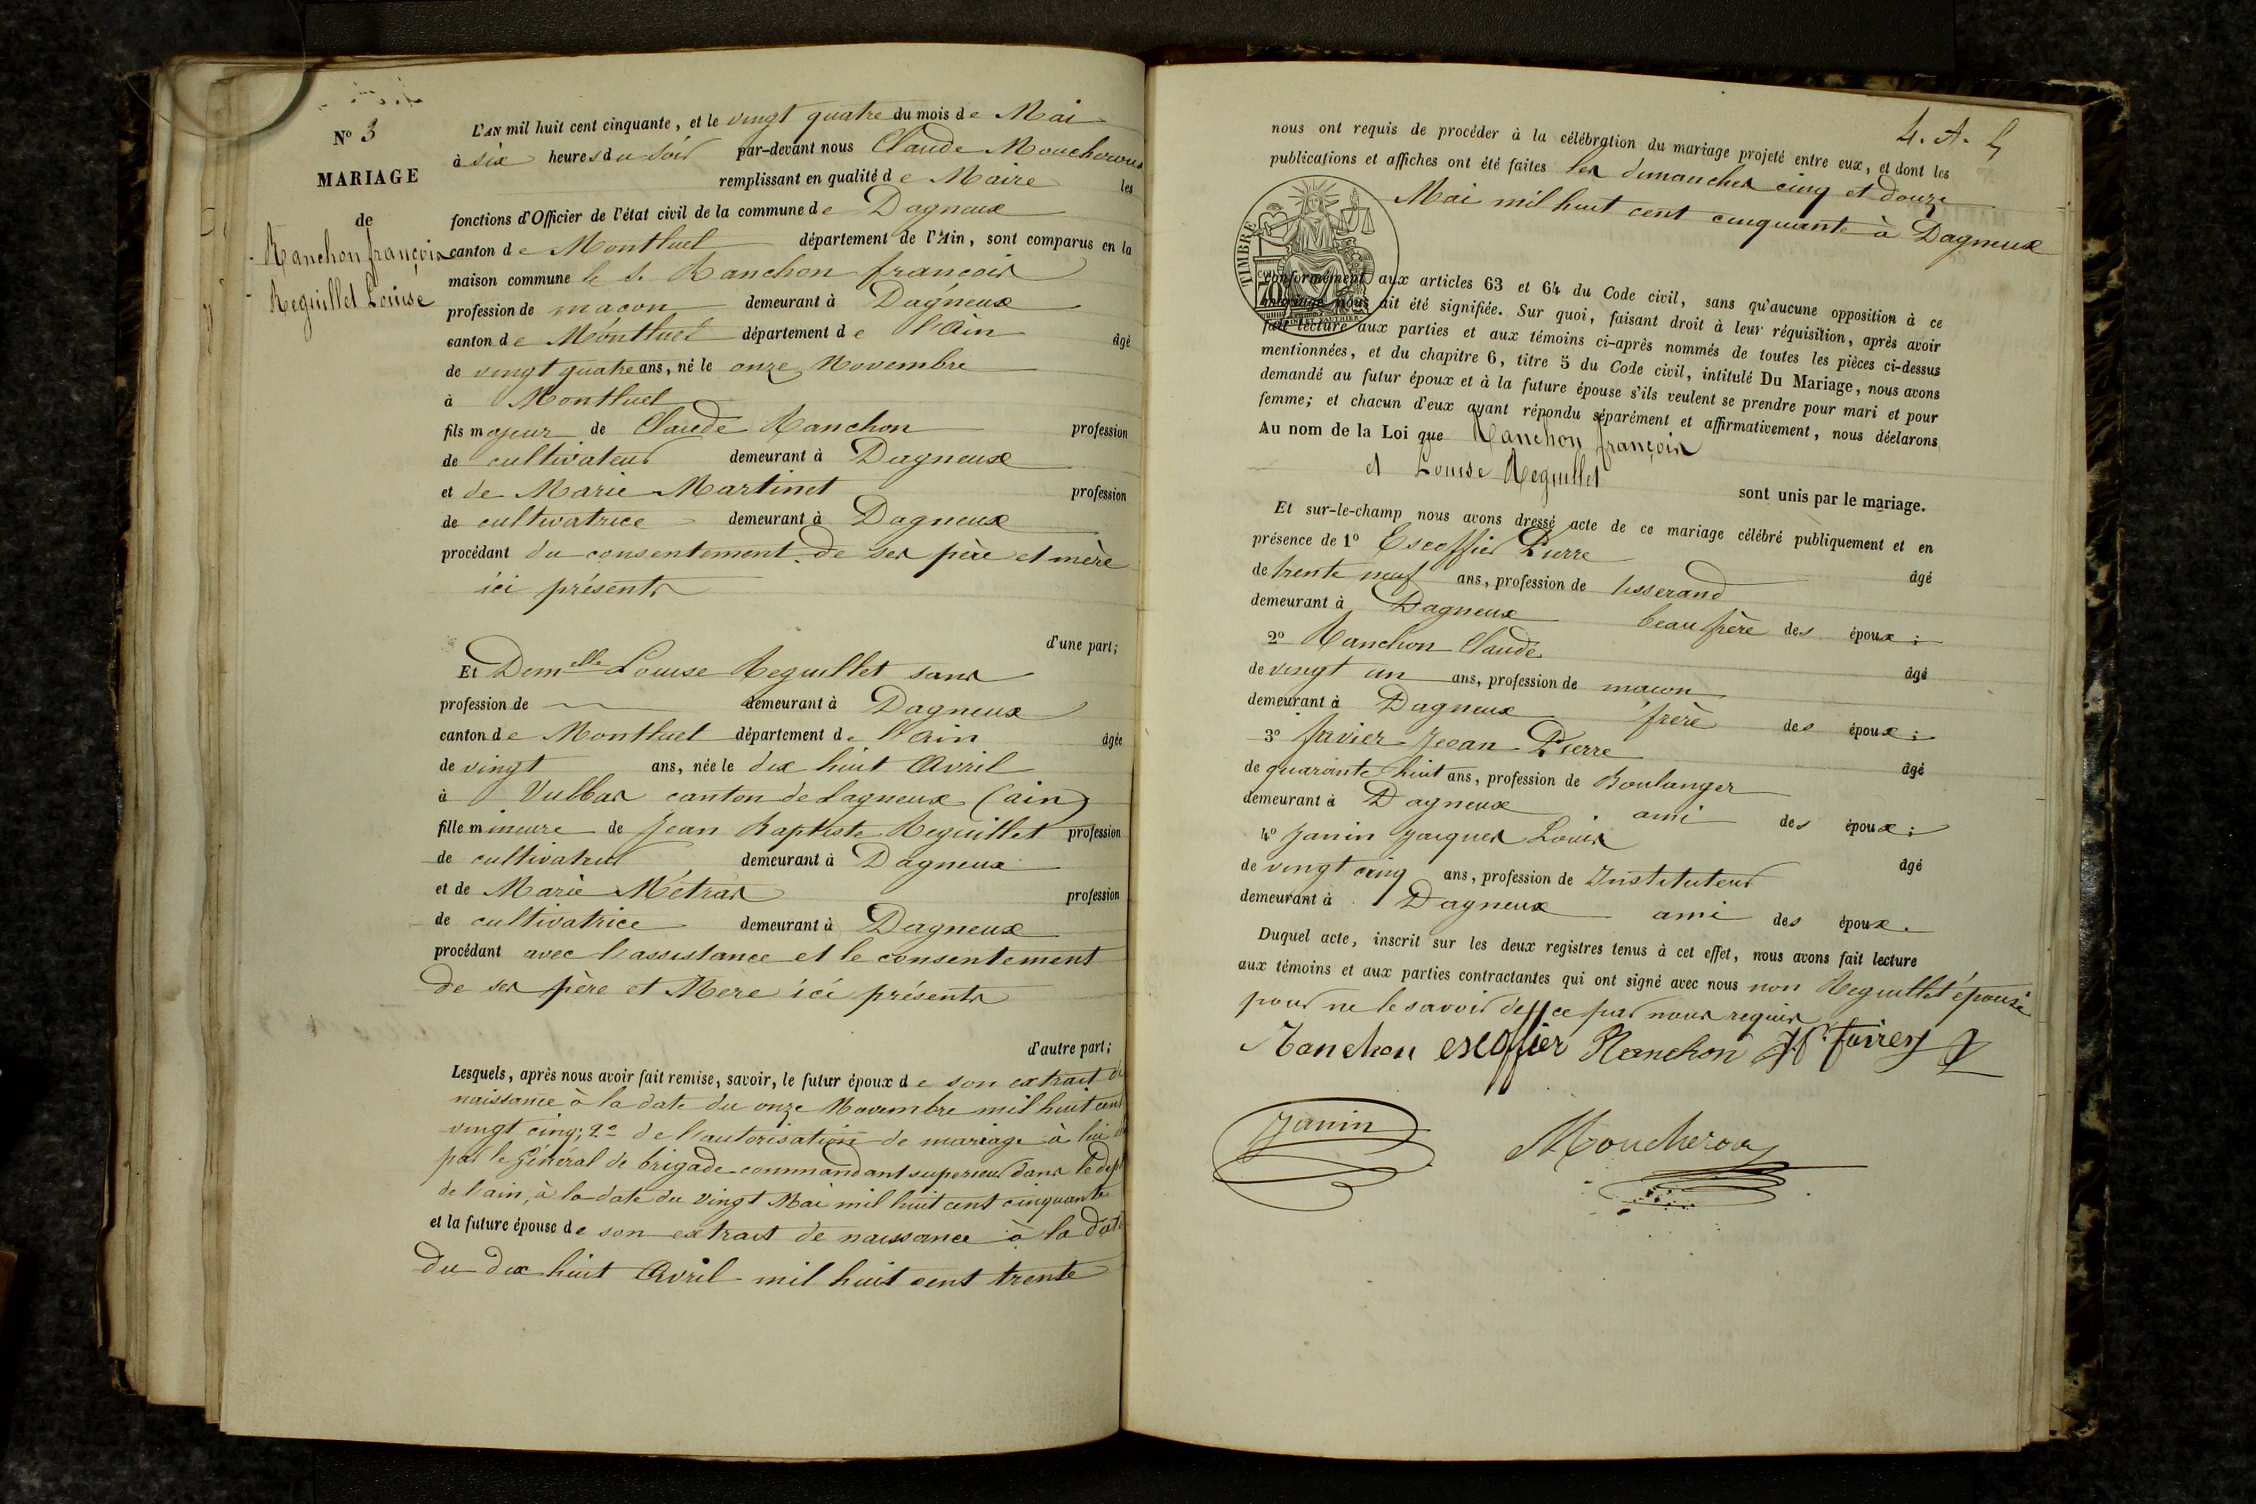 N° 3
MARIAGE
de
Ranchon françois
Reguillet Louise
L'AN mil huit cent cinquante, et le vingt quatre du mois de Mai
à six heures du soir par-devant nous Claude Moucheroux
remplissant en qualité de Maire les
fonctions d'Officier de l'état civil de la commune de Dagneux
canton de Montluel département de l'Ain, sont comparus en la
maison commune le s. Ranchon françois
profession de maçon demeurant à Dagneux
canton de Montluel département de l'Ain âgé
de vingt quatre ans, né le onze Novembre
à Montluel
fils majeur de Claude Ranchon profession
de cultivateur demeurant à Dagneux
et de Marie Martinet profession
de cultivatrice demeurant à Dagneux
procédant du consentement de ses père et mère
ici présents
d'une part;
Et Dem^elle Louise Reguillet sans
profession de demeurant à Dagneux
canton de Montluel département de l'Ain âgée
de vingt ans, née le dix huit Avril
à Vulbas canton de Lagneux (ain)
fille mineure de Jean Baptiste Reguillet profession
de cultivateur demeurant à Dagneux
et de Marie Métras profession
de cultivatrice demeurant à Dagneux
procédant avec l'assistance et le consentement
de ses père et Mere ici présents
d'autre part;
Lesquels, après nous avoir fait remise, savoir, le futur époux de son extrait de
naissance à la date du onze Novembre mil huit cent
vingt cinq; 2° de l'autorisation de mariage à lui
par le Général de brigade commandant superieur dans le dept
de l'ain, à la date du vingt Mai mil huit cent cinquante
et la future épouse de son extrait de naissance à la date
du dix huit Avril mil huit cent trente
nous ont requis de procéder à la célébration du mariage projeté entre eux, et dont les
publications et affiches ont été faites les dimanches cinq et douze
Mai mil huit cent cinquante à Dagneux
TIMBRE
conformément aux articles 63 et 64 du Code civil, sans qu'aucune opposition à ce
mariage nous ait été signifiée. Sur quoi, faisant droit à leur réquisition, après avoir
fait lecture aux parties et aux témoins ci-après nommés de toutes les pièces ci-dessus
mentionnées, et du chapitre 6, titre 5 du Code civil, intitulé Du Mariage, nous avons
demandé au futur époux et à la future épouse s'ils veulent se prendre pour mari et pour
femme; et chacun d'eux ayant répondu séparément et affirmativement, nous déclarons
Au nom de la Loi que Ranchon françois
et Louise Reguillet
sont unis par le mariage.
Et sur-le-champ nous avons dressé acte de ce mariage célébré publiquement et en
présence de 1° Escoffier Pierre âgé
de trente neuf ans, profession de tisserand
demeurant à Dagneux beau frère des époux;
2° Ranchon Claude âgé
de vingt un ans, profession de maçon
demeurant à Dagneux frère des époux;
3° favier Jean Pierre âgé
de quarante huit ans, profession de Boulanger
demeurant à Dagneux ami des époux;
4° Janin Jacques Louis âgé
de vingt cinq ans, profession de Instituteur
demeurant à Dagneux ami des époux.
Duquel acte, inscrit sur les deux registres tenus à cet effet, nous avons fait lecture
aux témoins et aux parties contractantes qui ont signé avec nous non Reguillet épouse
pour ne le savoir de ce par nous requis
Ranchon escoffier Ranchon
Janin Moucheroux